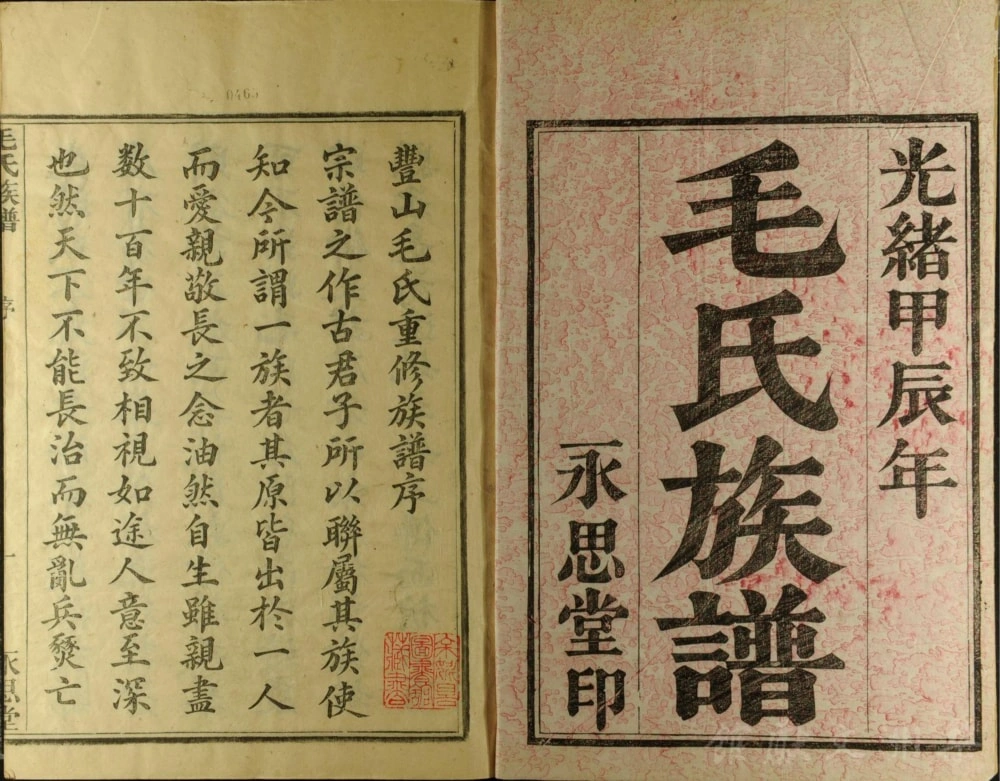 光緒甲辰年
毛氏族譜
永思堂印
豐山毛氏重修族譜序
宗譜之作古君子所以聯屬其族使
知今所謂一族者其原皆出於一人
而愛親敬長之念油然自生雖親盡
数十百年不致相視如途人意至深
也然天下不能長治而無亂兵燹亡
毛氏族譜
序
一
永思堂